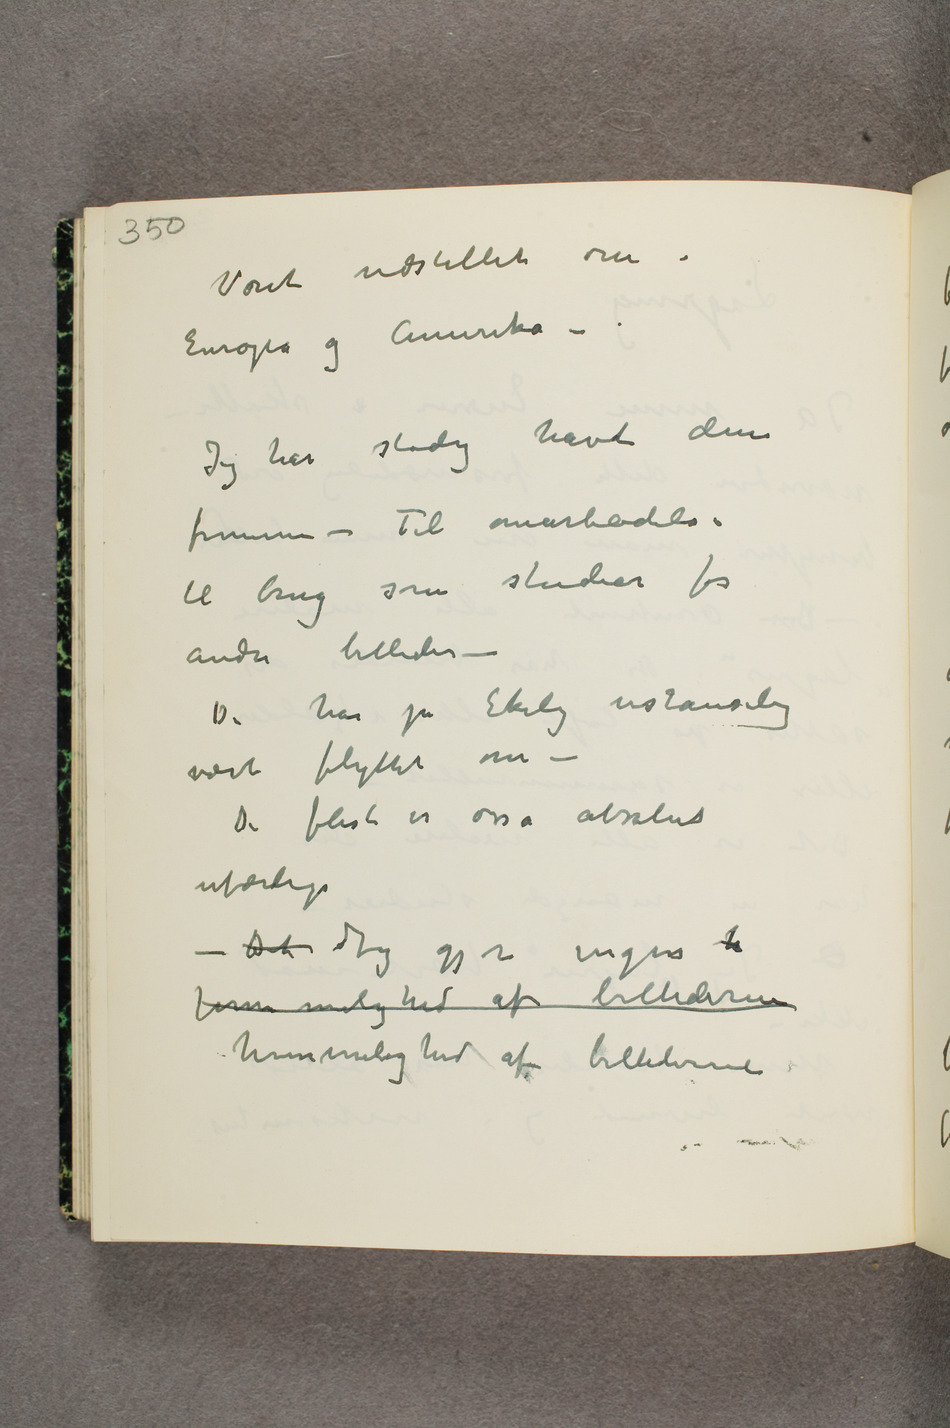 350
Været udstillet om i
Europa og Amerika –
Jeg har stadig havt dem
fremme – Til omarbedelse
til brug som studier for
andre billeder –
De har på Ekely ustanselig
vært flyttet om –
De fleste er osså absolut
uferdige
– Det Jeg gjør ingen h
hemmelighed af billederne
hemmelighed af billederne